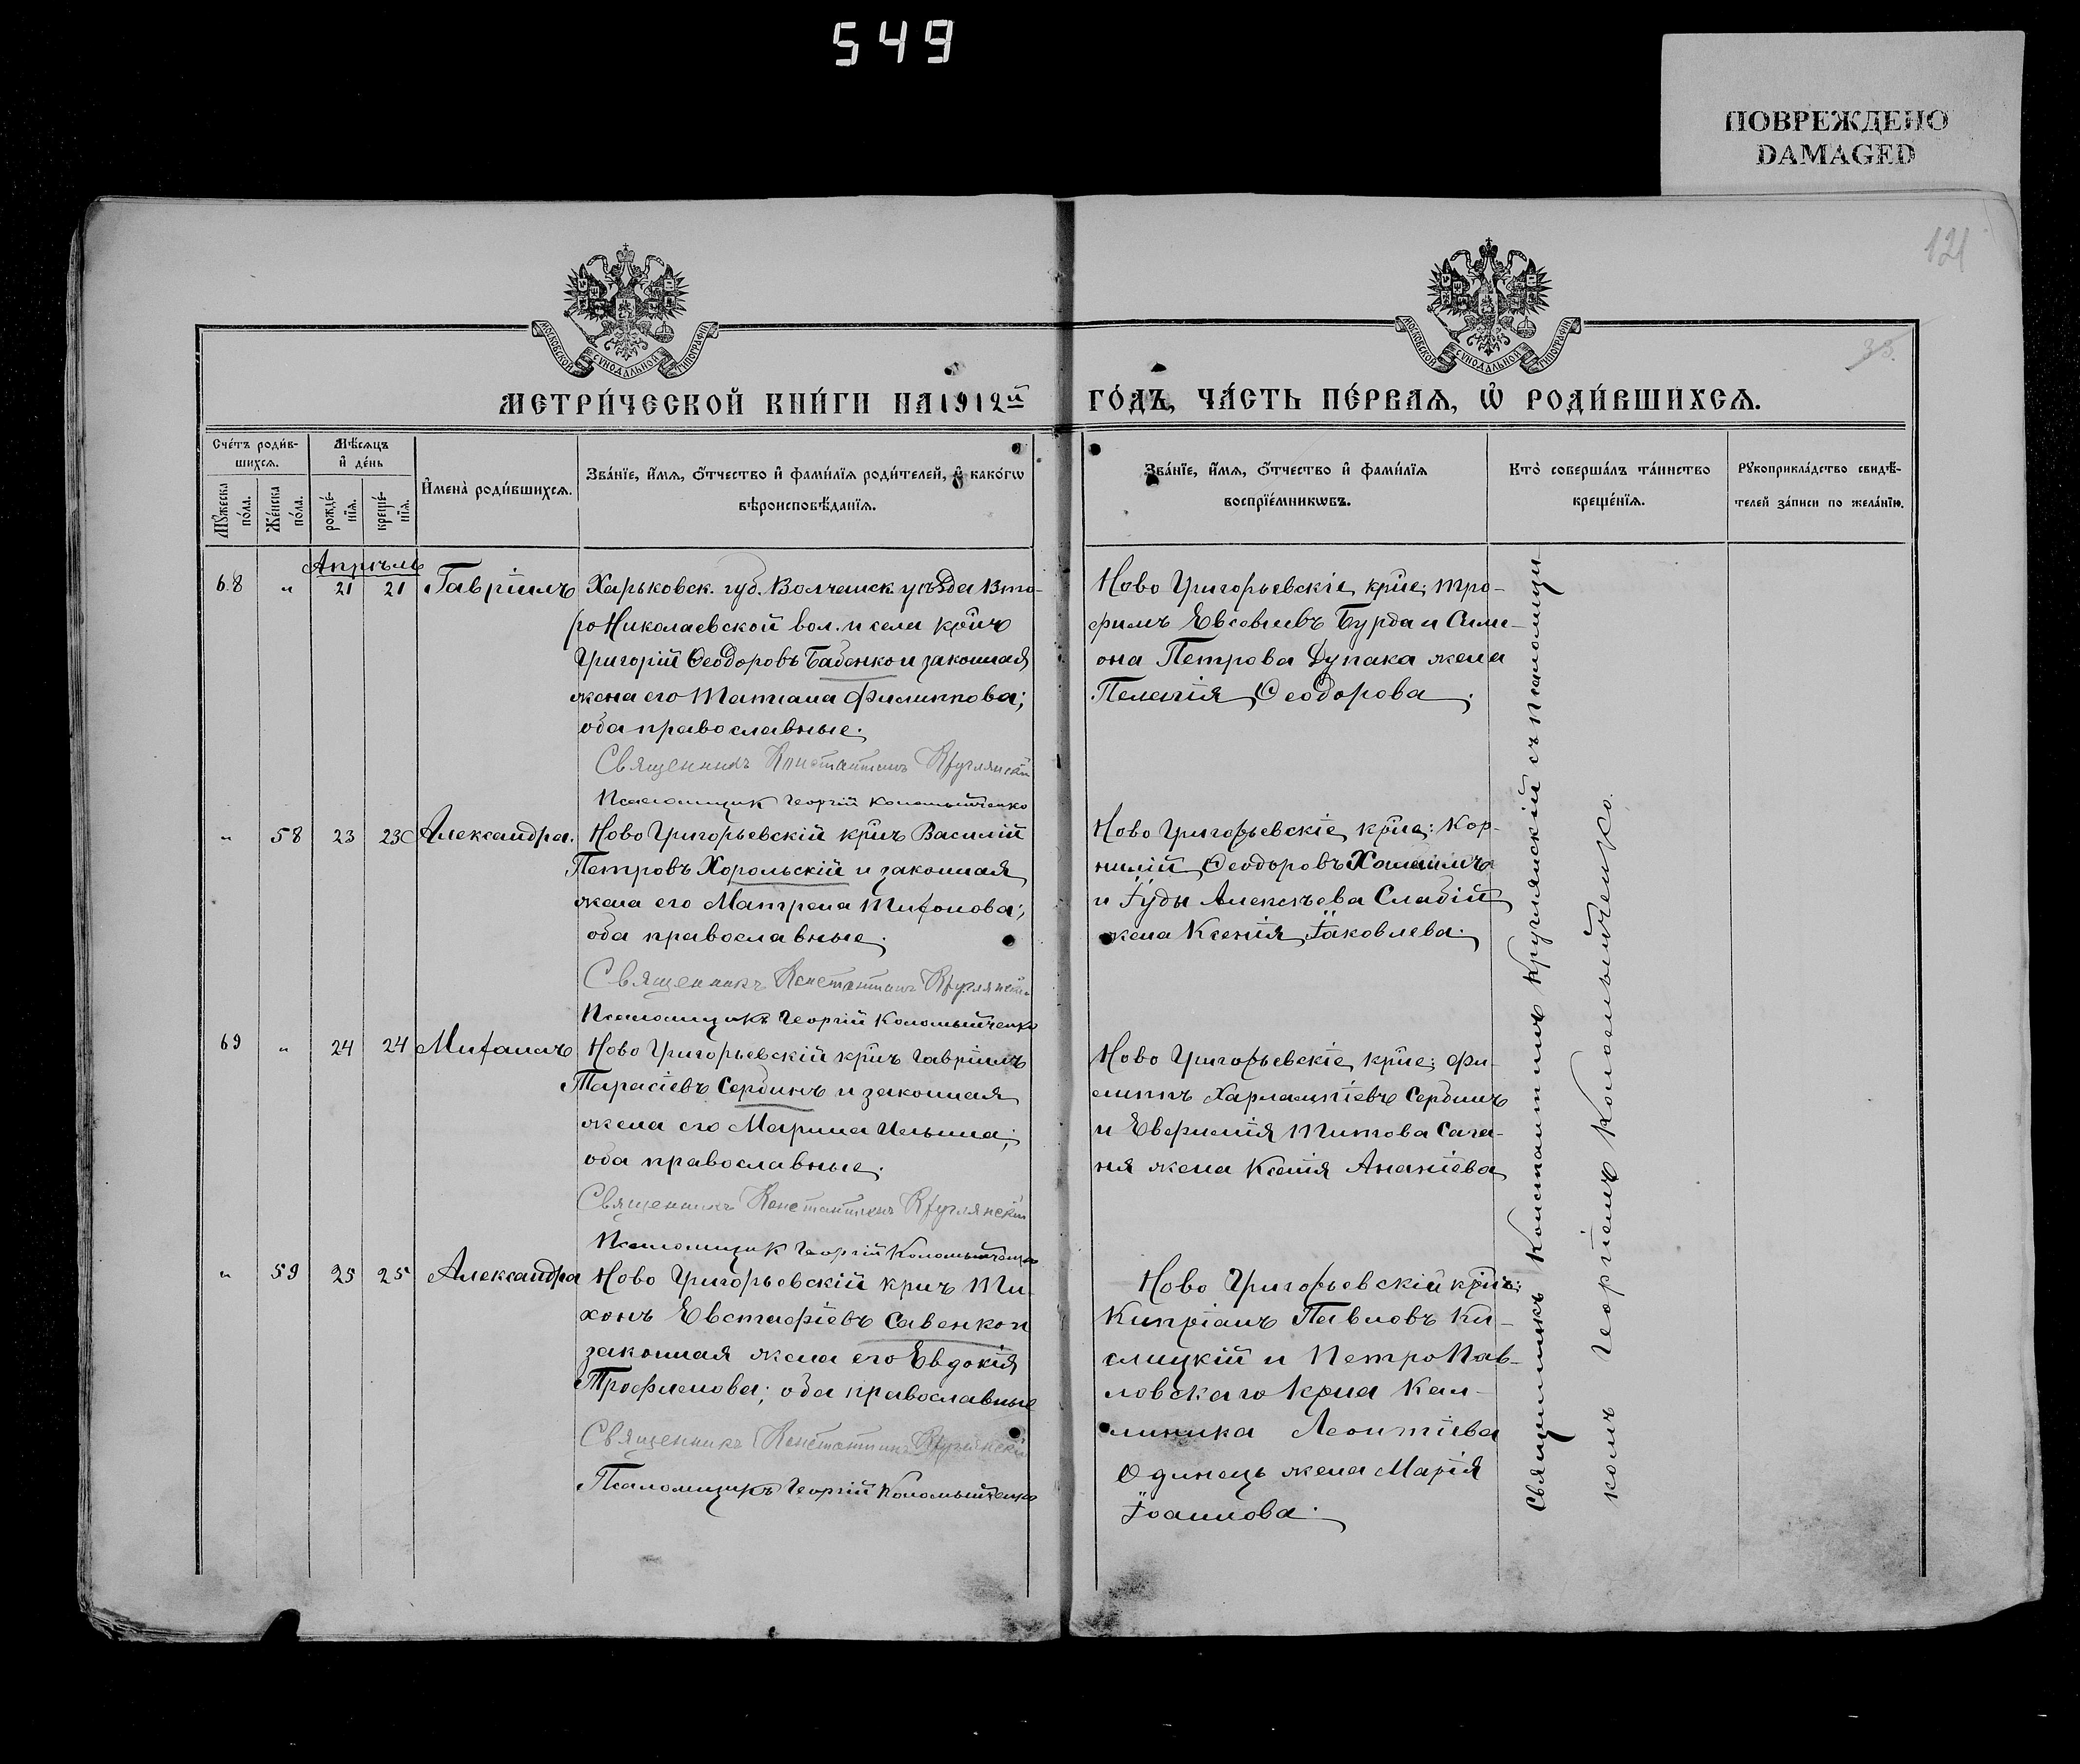 549
ПОВРЕЖДЕНО
DAMAGED
121
33.
МОСКОВСКОЙ СѴНОДАЛЬНОЙ ТИПОГРАФІИ
МОСКОВСКОЙ СѴНОДАЛЬНОЙ ТИПОГРАФІИ
МЕТРИ́ЧЕСКОЙ КНИ́ГИ НА 1912й ГО́ДЪ, ЧА́СТЬ ПЕ́РВАѦ, Ѡ҆ РОДИ́ВШИХСѦ.
Сче́тъ роди́в-
шихсѧ.
Мꙋ́жеска по́ла.
Же́нска по́ла.
Мѣ́сѧцъ
и҆ де́нь
рожде́-
нїѧ.
креще́-
нїѧ.
И҆мена̀ роди́вшихсѧ.
Зва́нїе, и҆́мѧ, ѻ҆́тчество и҆ фами́лїѧ роди́телей, и҆ како́гѡ
вѣроисповѣ́данїѧ.
Зва́нїе, и҆́мѧ, ѻ҆́тчество и҆ фами́лїѧ
воспрїе́мникѡвъ.
Кто̀ соверша́лъ та́инство
креще́нїѧ.
Рꙋкоприкла́дство свидѣ́-
телей за́писи по жела́нїю.
Апрѣль
68 " 21 21 Гавріилъ
Харьковск. губ. Волчанск. уѣзда Вто-
ро Николаевской вол. и села кр҃инъ
Григорій Ѳеодоровъ Бабенко и законная
жена его Татіана Филиппова;
оба православные.
Священникъ Константинъ Круглянскій
Псаломщик Георгій Коломыйченко
Ново Григорьевскіе кр҃не: Тро-
фимъ Евсевіевъ Бурда и Сим-
она Петрова Дупака жена
Пелагія Ѳеодорова.
" 58 23 23 Александра.
Ново Григорьевскій кр҃инъ Василій
Петровъ Хорольскій и законная
жена его Матрена Тихонова;
оба православные.
Священникъ Константинъ Круглянскій
Псаломщикъ Георгій Коломыйченко
Ново Григорьевскіе кр҃не: Кор-
нилій Ѳеодоровъ
и Іуды Алексѣева Слабій
жена Ксенія Іаковлева.
69 " 24 24 Михаилъ
Ново Григорьевскій кр҃инъ Гавріилъ
Тарасіевъ Сербинъ и законная
жена его Марина Ильина;
оба православные.
Священникъ Константинъ Круглянскій
Псаломщик Георгій Коломыйченко
Ново Григорьевскіе кр҃не: Фи-
липпъ Харлампіевъ Сербинъ
и Евфимія Титова Сага-
ня жена Ксенія Ананіева
" 59 25 25 Александра
Ново Григорьевскій кр҃нъ Ти-
хонъ Евстафіевъ Савенко и
законная жена его Евдокія
Трофимова; оба православные
Священникъ Константинъ Круглянскій
Псаломщикъ Георгій Коломыйченко
Ново Григорьевскій кр҃инъ:
Кипріанъ Павловъ Ки-
слицкій и Петропав-
ловскаго кр҃на Кал-
линика Леонтіева
Одинець жена Марія
Іоаннова.
Священникъ Константинъ Круглянскій съ псаломщи-
комъ Георгіемъ Коломыйченко.